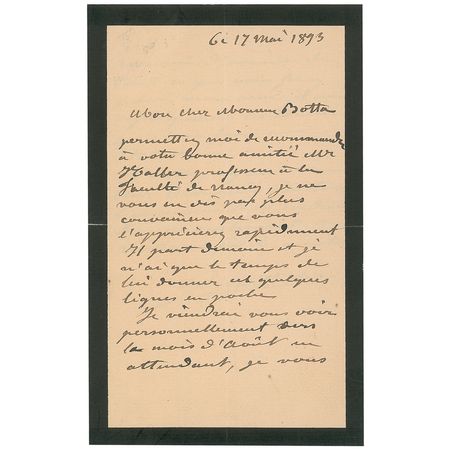 Ce 17 Mai 1893
Mon cher Monsieur Botta
permettez moi de recommander
à votre bonne amitié Mr
Haller professeur à la
Faculté de Nancy, je ne
vous en dis pas plus
convaincu que vous
l'apprécierez rapidement
Il part demain et je
n'ai que le temps de
lui donner ces quelques
lignes en poche
Je viendrai vous voir
personnellement vers
le mois d'Août en
attendant, je vous